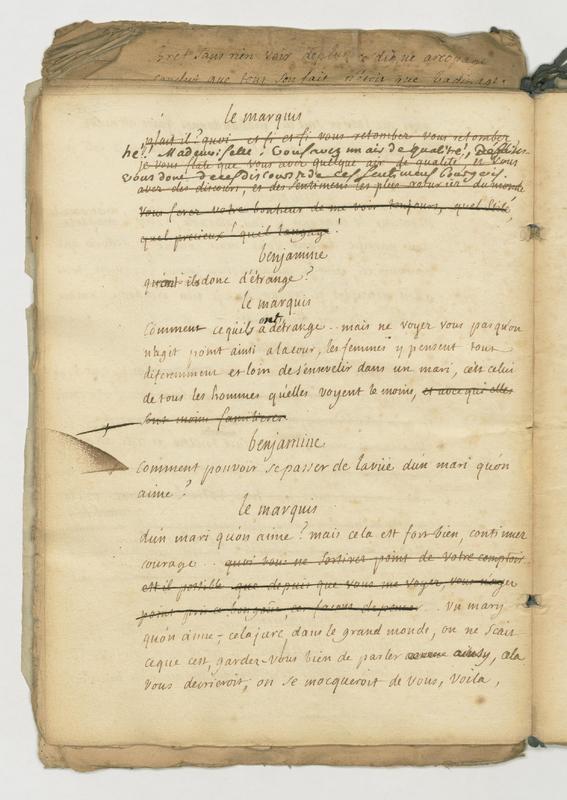 bret sans rien voir de plus
conclut que tout son fait n'étoit que badinage.
le marquis
plait il? quoi et fi et fi vous retomber vous retomber
hé! Mademoiselle! vous avez un air de qualité,
je vous flate que vous avez quelque air de qualité, et vous
vous donc de ces discours & de ces sentimens bourgeois.
avez des discours, et des sentimens les plus roturier du monde
vous ferez votre bonheur de me voir toujours, quel stile,
quel precieux! quel langage!
benjamine
qu'ont ils donc d'étrange?
le marquis
Comment ce qu'ils ont d'etrange.. mais ne voyez vous pas qu'on
n'agit point ainsi a la cour, les femmes y pensent tout
differemment et loin de s'ensevelir dans un mari, c'est celui
de tous les hommes qu'elles voyent le moins, et avec qui elles
sont moins familieres.
benjamine
Comment pouvoir se passer de la vüe d'un mari qu'on
aime?
le marquis
d'un mari qu'on aime? mais cela est fort bien, continuez
courage .. quoi vous ne sortirez point de votre comptoir
est il possible que depuis que vous me voyez, vous n'ayez
point pris ce bon goût, ces façons de penser .. Un mary
qu'on aime, cela jure, dans le grand monde, on ne scait
ce que c'est, gardez-vous bien de parler comme ainsy, cela
vous decrieroit, on se mocqueroit de vous, voila,